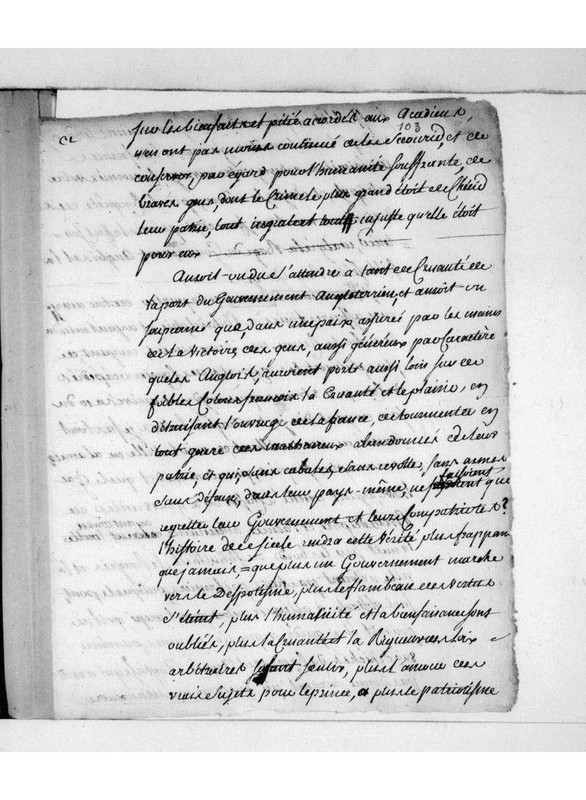 sur les bienfaits et pitié accordés aux Acadiens,
103
n'en ont pas moins continué ces les secours, et de
conserver, par égard pour l'humanité souffrante, ces
braves gens, dont le Crime le plus grand étoit de Chérir
leur patrie, tout ingrate et toute injuste qu'elle étoit
pour eux
Auroit-on dû s'attendre à tant de Cruauté de
la part du Gouvernement Angloterrien, et auroit-on
soupçonné que, dans une paix assurée par les mains
de La Victoire, des gens, aussi généreux par Caractère
que les Anglois, auroient porté aussi loin sur de
foibles Colons françois la Cruauté et le plaisir, en
détruisant l'ouvrage de la france, de tourmenter en
tout genre des malheureux abandonnés de leur
patrie, et qui, sans cabales, sans revolte, sans armes
sans défense, dans leur pays-même, ne faisoient que
regretter leur Gouvernement et leurs Compatriotes?
l'histoire de ce siecle rendra cette Vérité plus frappan
que jamais, = que plus un Gouvernement marche
vers le Despotisme, plus le flambeau des Vertus
s'éteint, plus l'humanité et la bienfaisance sont
oubliés, plus la Cruauté et la Rigueur des Loix
arbitraires se font sentir, plus l'amour des
vrais Sujets pour le prince, plus le patriotisme